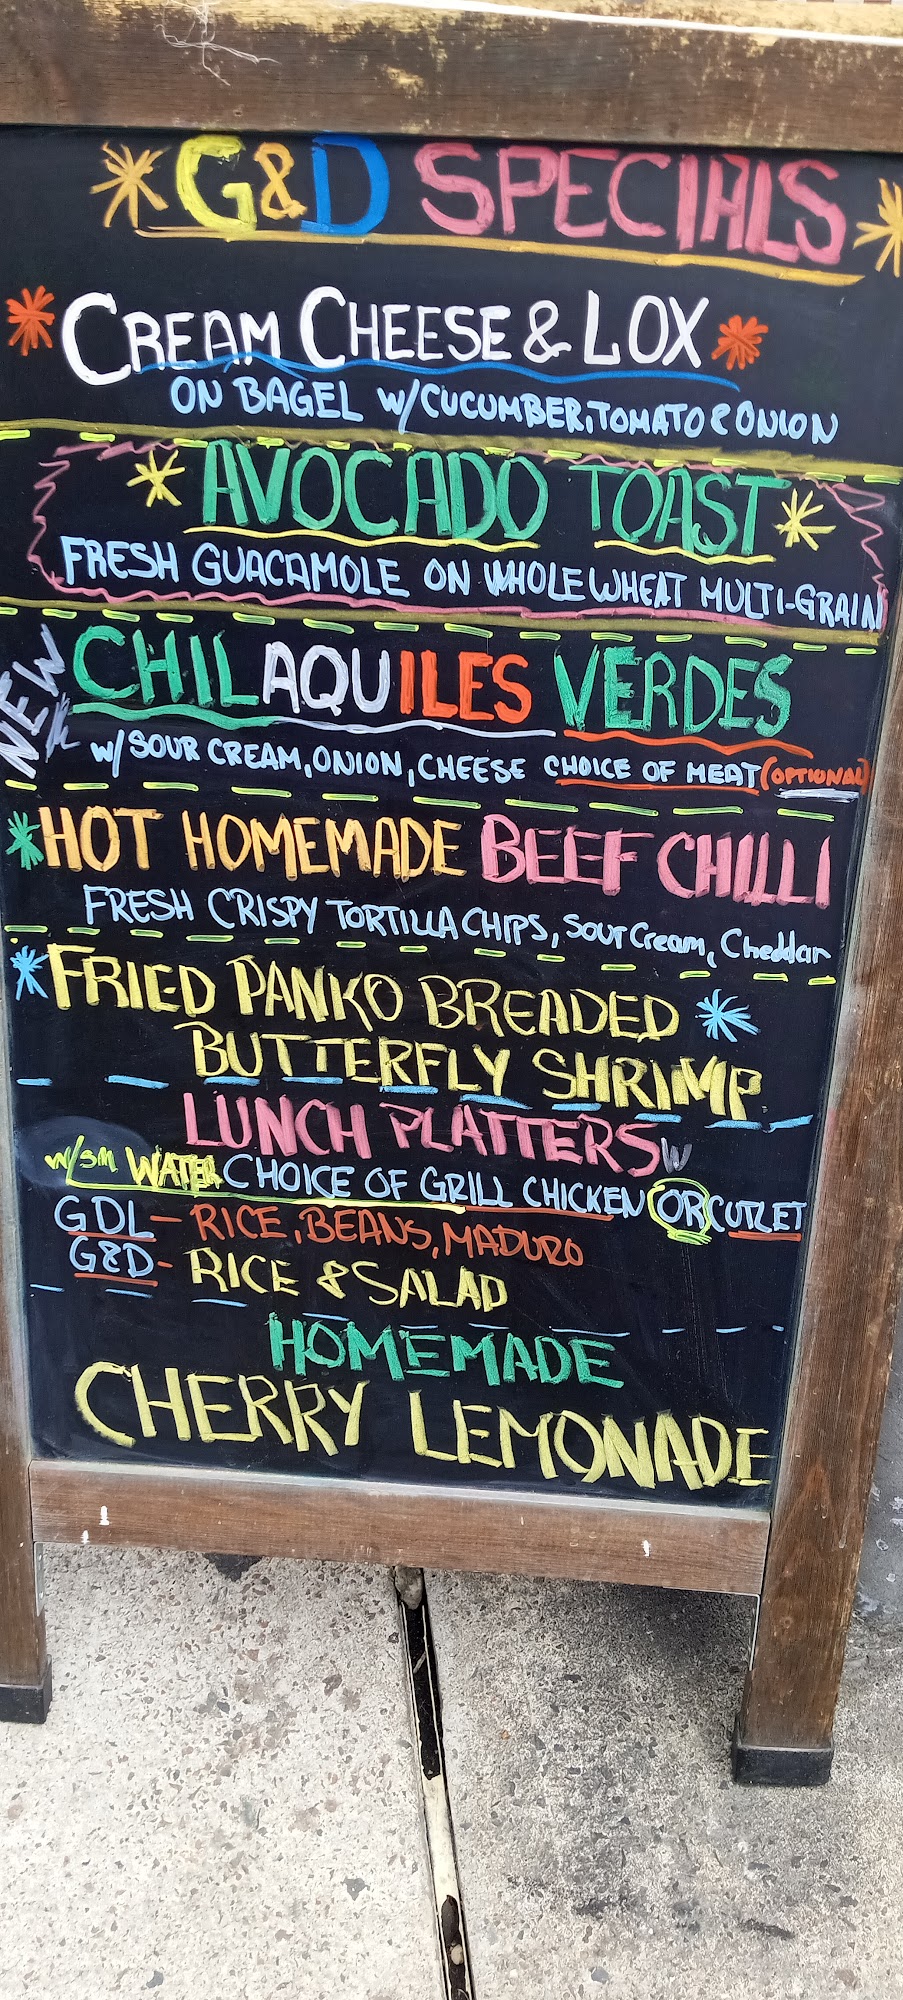 G&D SPECIALS
CREAM CHEESE & LOX
ON BAGEL W/CUCUMBER, TOMATO & ONION
AVOCADO TOAST
FRESH GUACAMOLE ON WHOLE WHEAT MULTI-GRAIN
NEW
CHILAQUILES VERDES
W/ SOUR CREAM, ONION, CHEESE CHOICE OF MEAT (OPTIONAL)
HOT HOMEMADE BEEF CHILLI
FRESH CRISPY TORTILLA CHIPS, Sour Cream, Cheddar
FRIED PANKO BREADED
BUTTERFLY SHRIMP
LUNCH PLATTERS W
W/SM WATER CHOICE OF GRILL CHICKEN OR CUTLET
GDL - RICE, BEANS, MADURO
G&D - RICE & SALAD
HOMEMADE
CHERRY LEMONADE